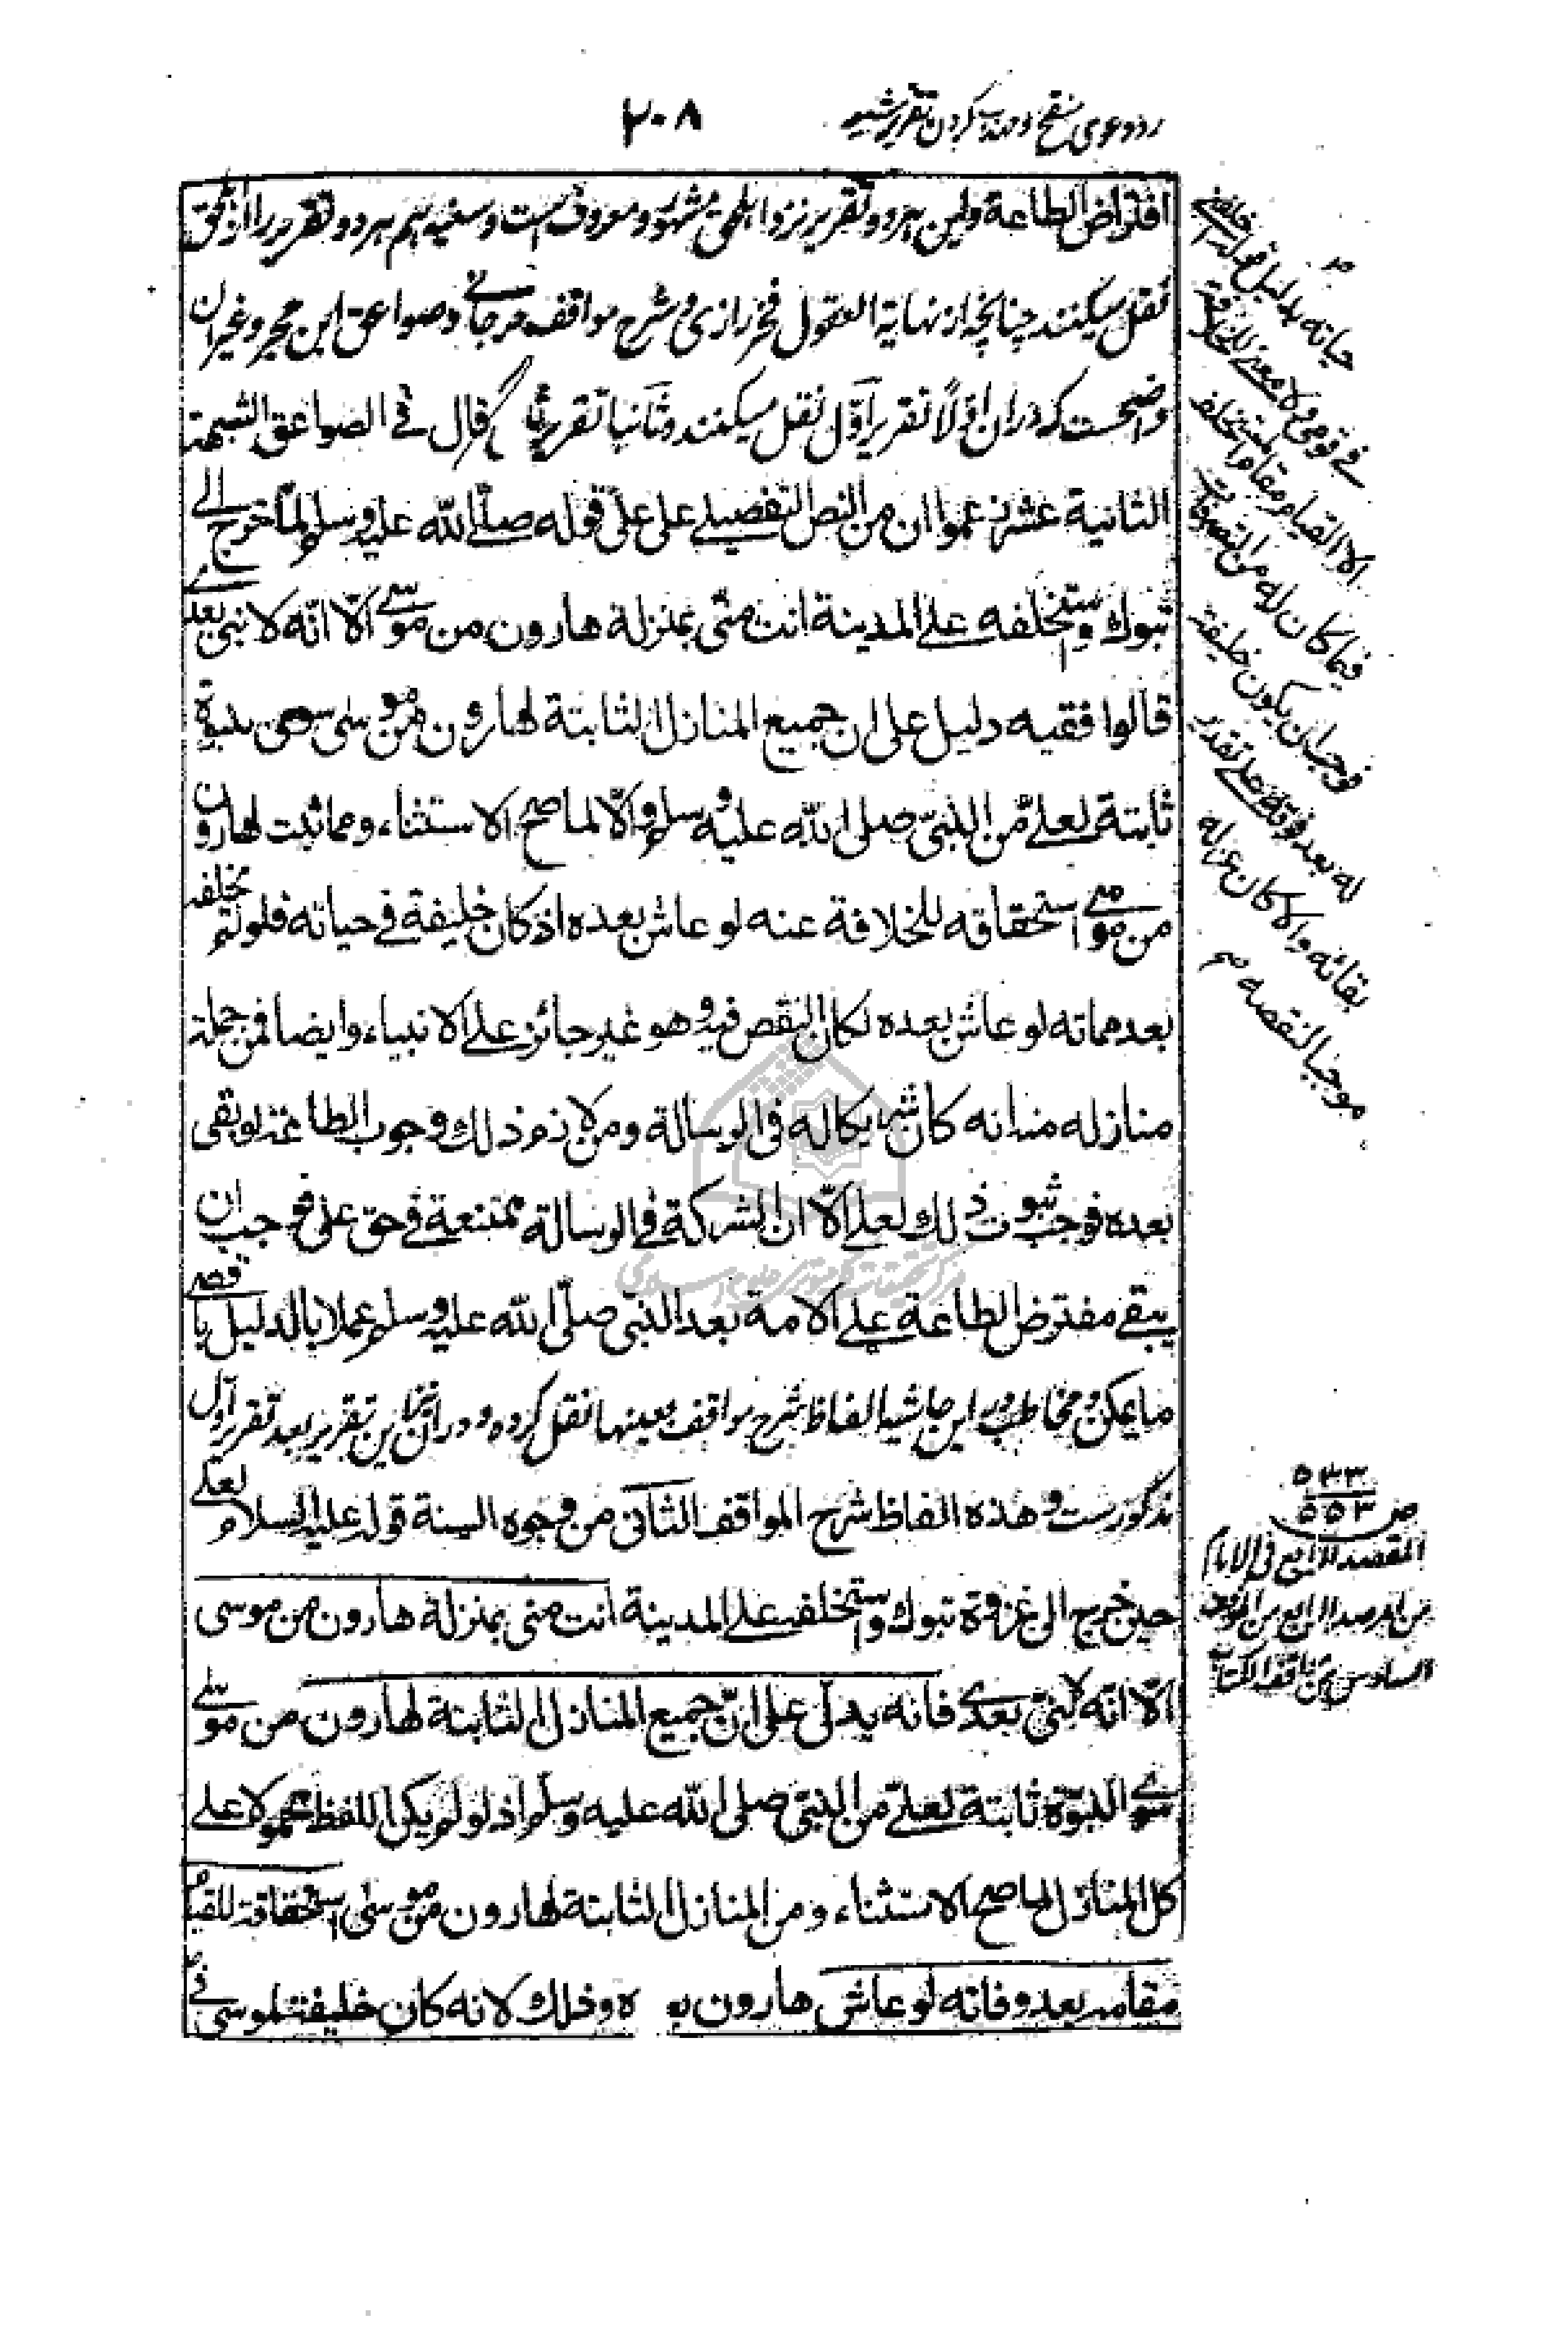 رد دعوی منقح و مهذب کردن تقریر شیعه
۲۰۸
افتراض الطاعة واین هر دو تقریر نزد اهل حق مشهور و معروف ست و سنیه هم هر دو تقریر را از اهل حق
نقل میکنند چنانچه از نهایة العقول فخر رازی و شرح مواقف جرجانی و صواعق ابن حجر و غیر آن
واضحست که دران اولاً تقریر اوّل نقل میکنند و ثانیا تقریر ثانی قال فی الصواعق الشبهة
الثانیة عشر زعموا ان من النص التفصیلی علی علی قوله صلّی الله علیه وسلم لمّا خرج الی
تبوك واستخلفه علی المدینة انت منّی بمنزلة هارون من موسی الّا انّه لا نبی بعدی
قالوا ففیه دلیل علی ان جمیع المنازل الثابتة لهارون من موسی سوی النبوة
ثابتة لعلی من النبیّ صلی الله علیه وسلم والّا لما صح الاستثناء ومما ثبت لهارون
من موسی استحقاقه للخلافة عنه لو عاش بعده اذ کان خلیفة فی حیاته فلو لم یخلفه
بعد مماته لو عاش بعده لکان النقص فیه وهو غیر جائز علی الانبیاء وایضا فمن جملة
منازله منه انه کان شریکا له فی الرسالة ومن لازم ذلك وجوب الطاعة لو بقی
بعده فوجب ثبوت ذلك لعلی الّا ان الشرکة فی الرسالة ممتنعة فی حق علی فوجب ان
یبقی مفترض الطاعة علی الامة بعد النبی صلّی الله علیه وسلم عملا بالدلیل باقصی
ما یمکن و مخاطب درین حاشیه الفاظ شرح مواقف بعینها نقل کرده و دران تقریر بعد تقریر اول
مذکورست وهذه الفاظ شرح المواقف الثانی من وجوه السنة قوله علیه السلام لعلی
حین خرج الی غزوة تبوك واستخلفه علی المدینة انت منی بمنزلة هارون من موسی
الّا انّه لا نبیّ بعدی فانه یدل علی انّ جمیع المنازل الثابتة لهارون من موسی
سوی النبوّة ثابتة لعلیّ من النبی صلی الله علیه وسلم اذ لو لم یکن اللفظ محمولا علی
کل المنازل لما صح الاستثناء ومن المنازل الثابتة لهارون من موسی استحقاقه للقیام
مقامه بعد وفاته لو عاش هارون بعده وذلك لانه کان خلیفة لموسی فی
حیاته بدلیل قوله اخلفنی
فی قومی ولا معنی للخلافة
الا القیام مقام المستخلف
فیما کان له من التصرفات
فوجب ان یکون خلیفة
له بعد وفاته علی تقدیر
بقائه والا کان عزله
موجبا لنقصه
ص ۵۳۳
۵۵۳
المقصد الرابع فی الامام
من المرصد الرابع من الموقف
السادس من مواقف الکتاب